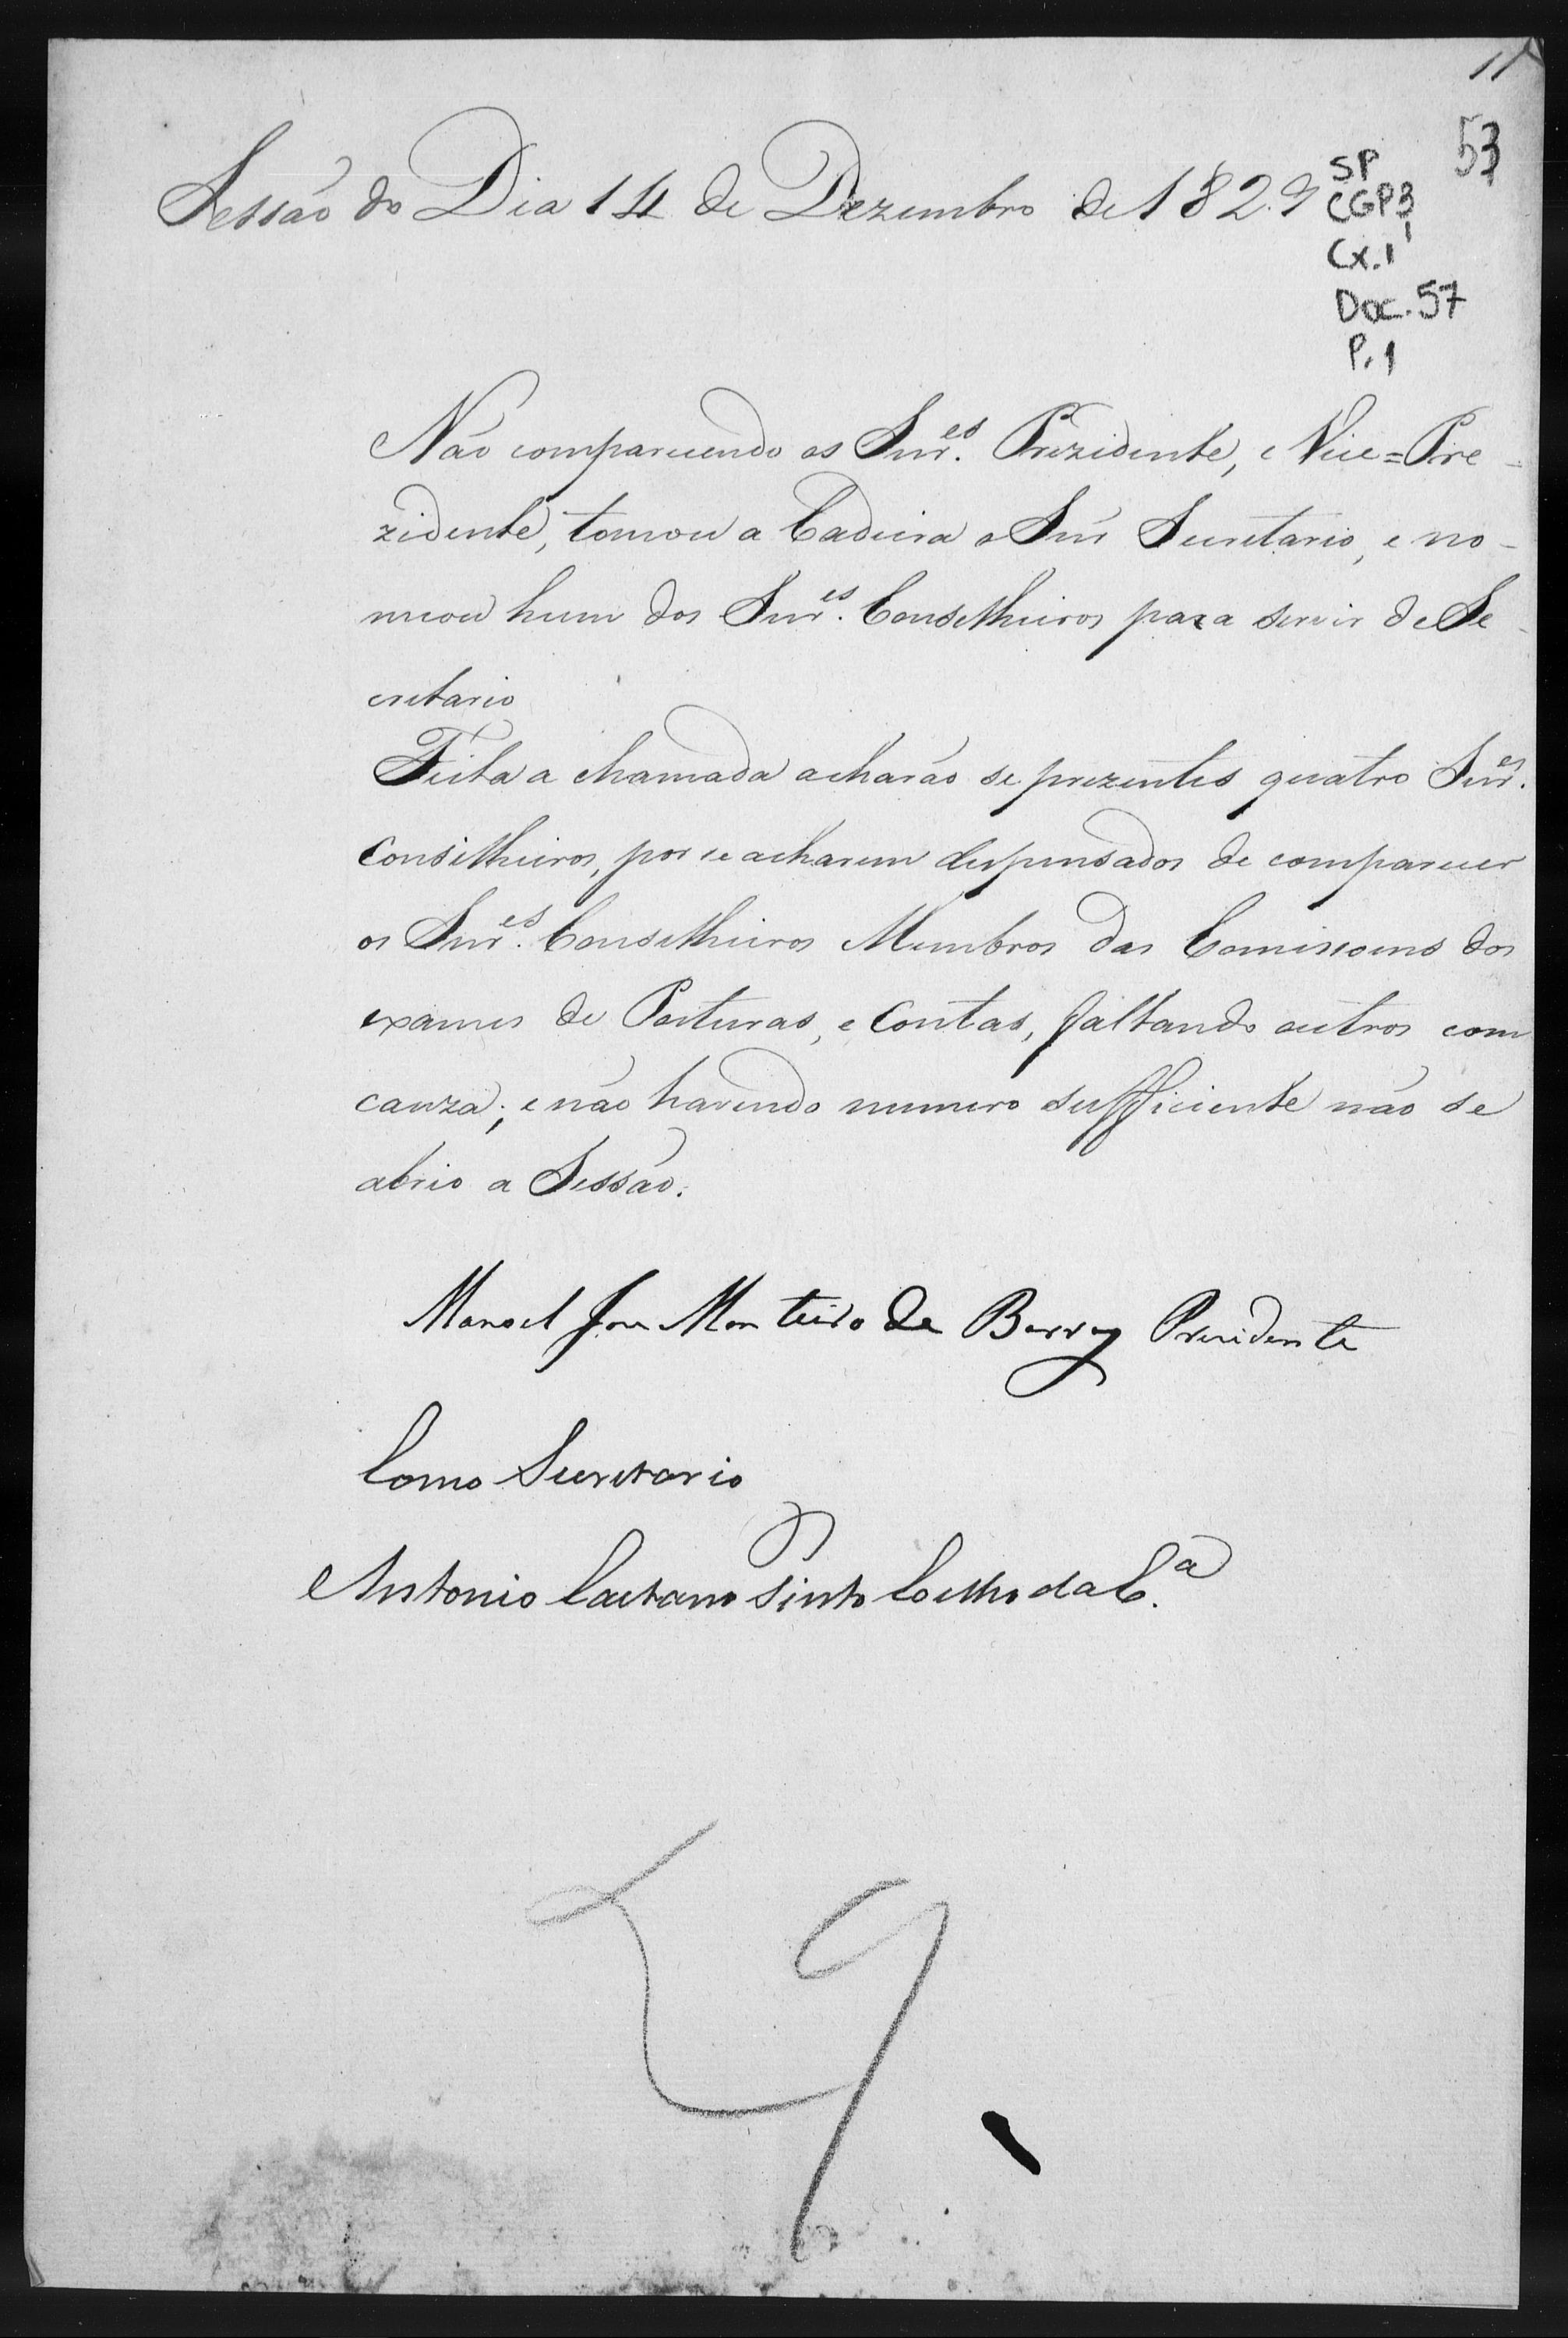 11
53
Sessão do Dia 14 de Dezembro de 1829
SP
CGP3
Cx.1
Doc. 57
P. 1
Não comparecendo os Snr.es Prezidente, e Vice=Pre-
zidente, tomou a Cadeira o Snr Secretario, e no-
meou hum dos Snr.es Conselheiros para servir de Se-
cretario
Feita a chamada acharão se prezentes quatro Snr.es
Conselheiros, por se acharem despensados de comparecer
os Snr.es Conselheiros Membros das Comissoens dos
exames de Posturas, e Contas, faltando outros com
cauza; e não havendo numero sufficiente não se
abrio a Sessão.
Manoel Jose Monteiro de Barros Presidente
Como Secretario
Antonio Caetano Pinto Coelho da C.a